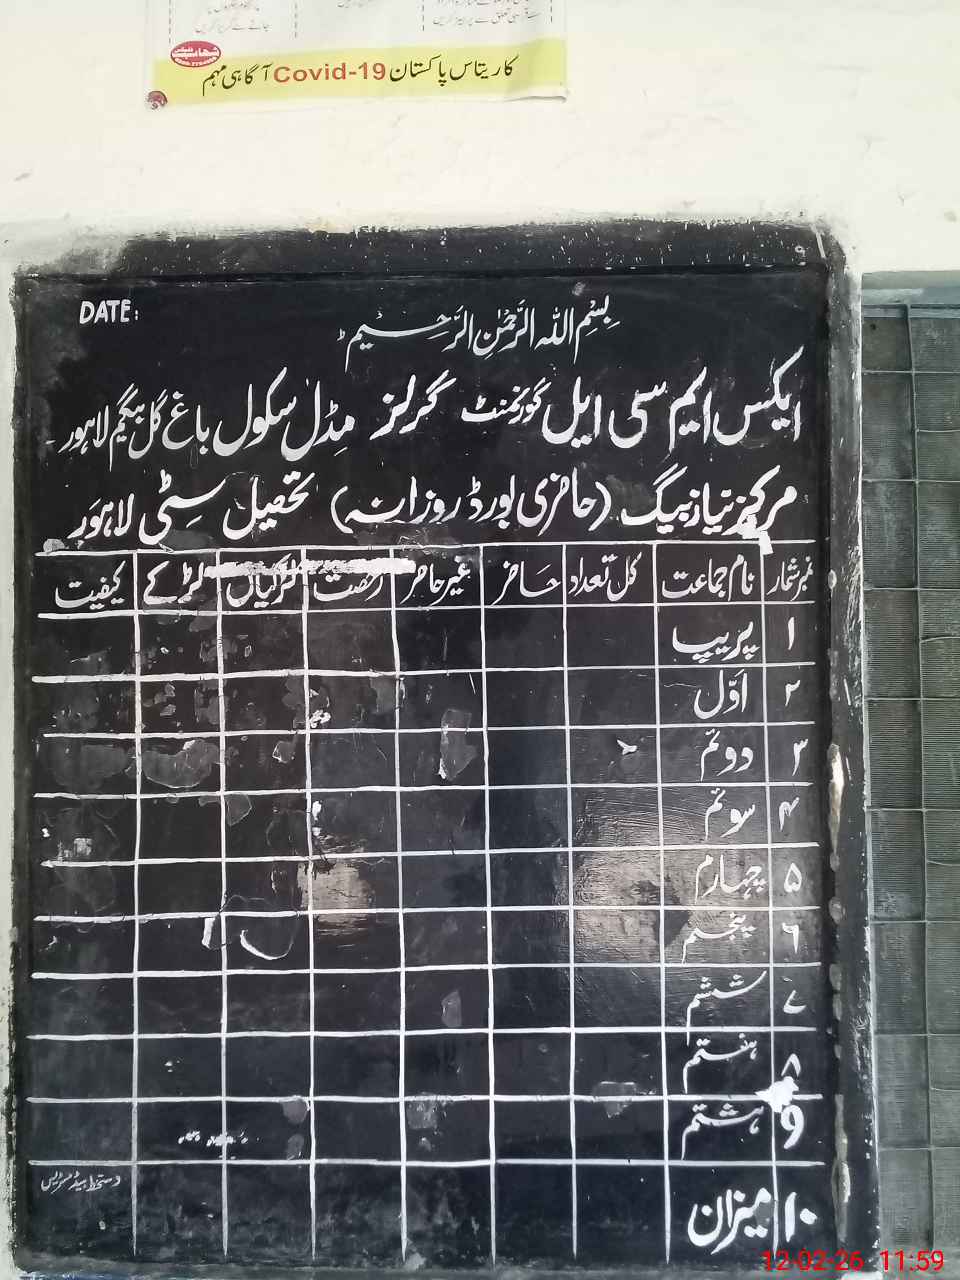 کاریتاس پاکستان Covid-19 آگاہی مہم
DATE:
بِسْمِ اللہِ الرَّحْمٰنِ الرَّحِیم
ایکس ایم سی ایل گورنمنٹ گرلز مڈل سکول باغ گل بیگم لاہور
مرکز نیاز بیگ (حاضری بورڈ روزانہ) تحصیل سِٹی لاہور
نمبر شمار نام جماعت کل تعداد حاضر غیر حاضر رخصت لڑکیاں لڑکے کیفیت
۱ پریپ
۲ اوّل
۳ دوئم
۴ سوئم
۵ چہارم
۶ پنجم
۷ ششم
۸ ہفتم
9 ہشتم
۱۰ میزان
دستخط ہیڈ مسٹریس
12-02-26 11:59